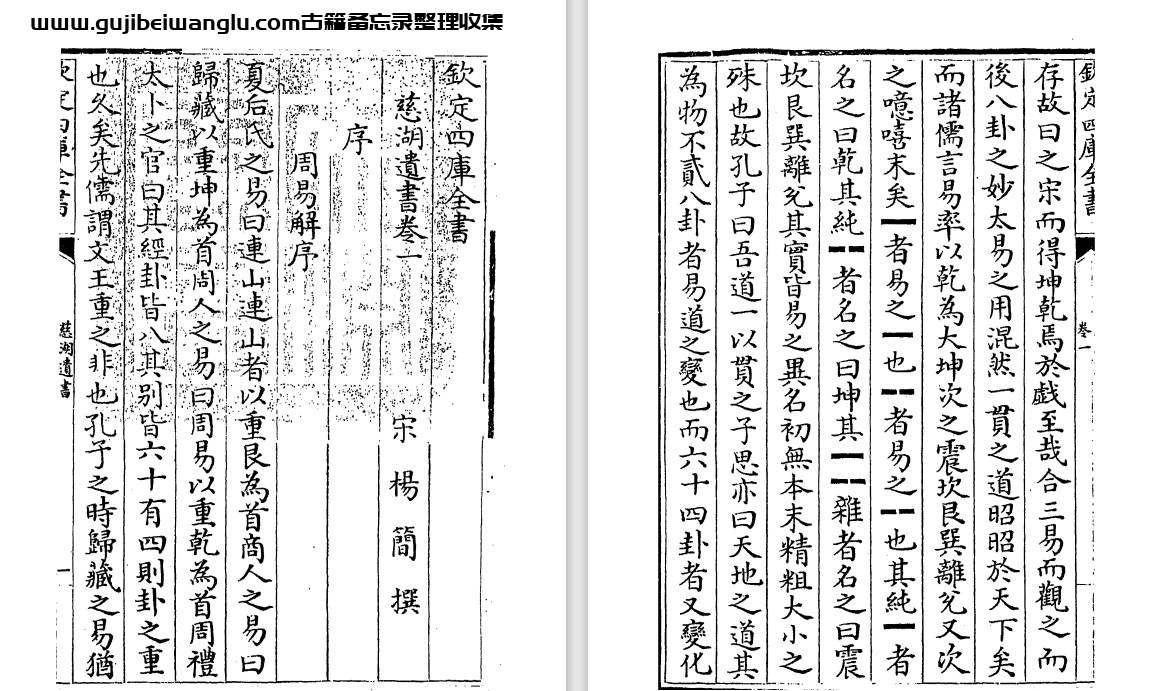 www.gujibeiwanglu.com古籍备忘录整理收集
欽定四庫全書
慈湖遺書卷一
宋 楊簡 撰
序
周易解序
夏后氏之易曰連山連山者以重艮為首商人之易曰
歸藏以重坤為首周人之易曰周易以重乾為首周禮
太卜之官曰其經卦皆八其别皆六十有四則卦之重
也久矣先儒謂文王重之非也孔子之時歸藏之易猶
欽定四庫全書
慈湖遺書
一
欽定四庫全書
卷一
存故曰之宋而得坤乾焉於戲至哉合三易而觀之而
後八卦之妙太易之用混然一貫之道昭昭於天下矣
而諸儒言易率以乾為大坤次之震坎艮巽離兊又次
之噫嘻末矣⚊者易之⚊也⚋者易之⚋也其純⚊者
名之曰乾其純⚋者名之曰坤其⚊⚋雜者名之曰震
坎艮巽離兊其實皆易之異名初無本末精粗大小之
殊也故孔子曰吾道一以貫之子思亦曰天地之道其
為物不貳八卦者易道之變也而六十四卦者又變化